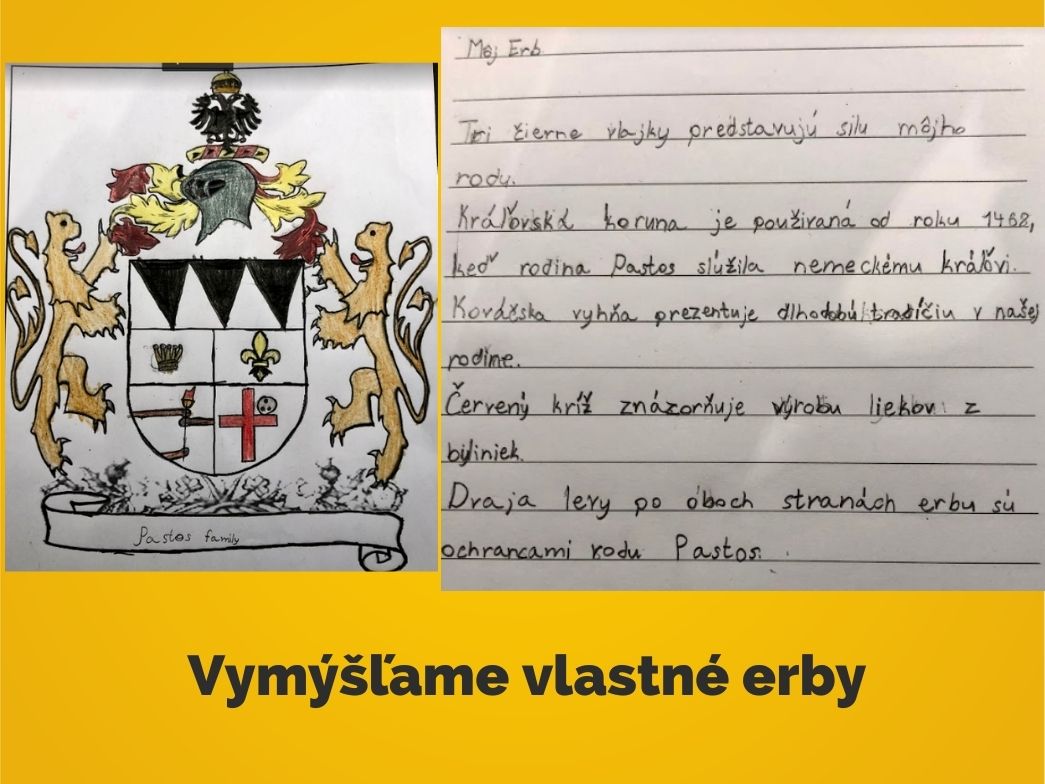 Moj Erb
Tri čierne vlajky predstavujú silu môjho
rodu.
Kráľovská koruna je používaná od roku 1468,
keď rodina Pastos slúžila nemeckému kráľovi.
Kováčska vyhňa prezentuje dlhodobú tradíciu v našej
rodine.
Červený kríž znázorňuje výrobu liekov z
byliniek.
Draja levy po oboch stranách erbu sú
ochrancami rodu Pastos.
Pastos family
Vymýšľame vlastné erby